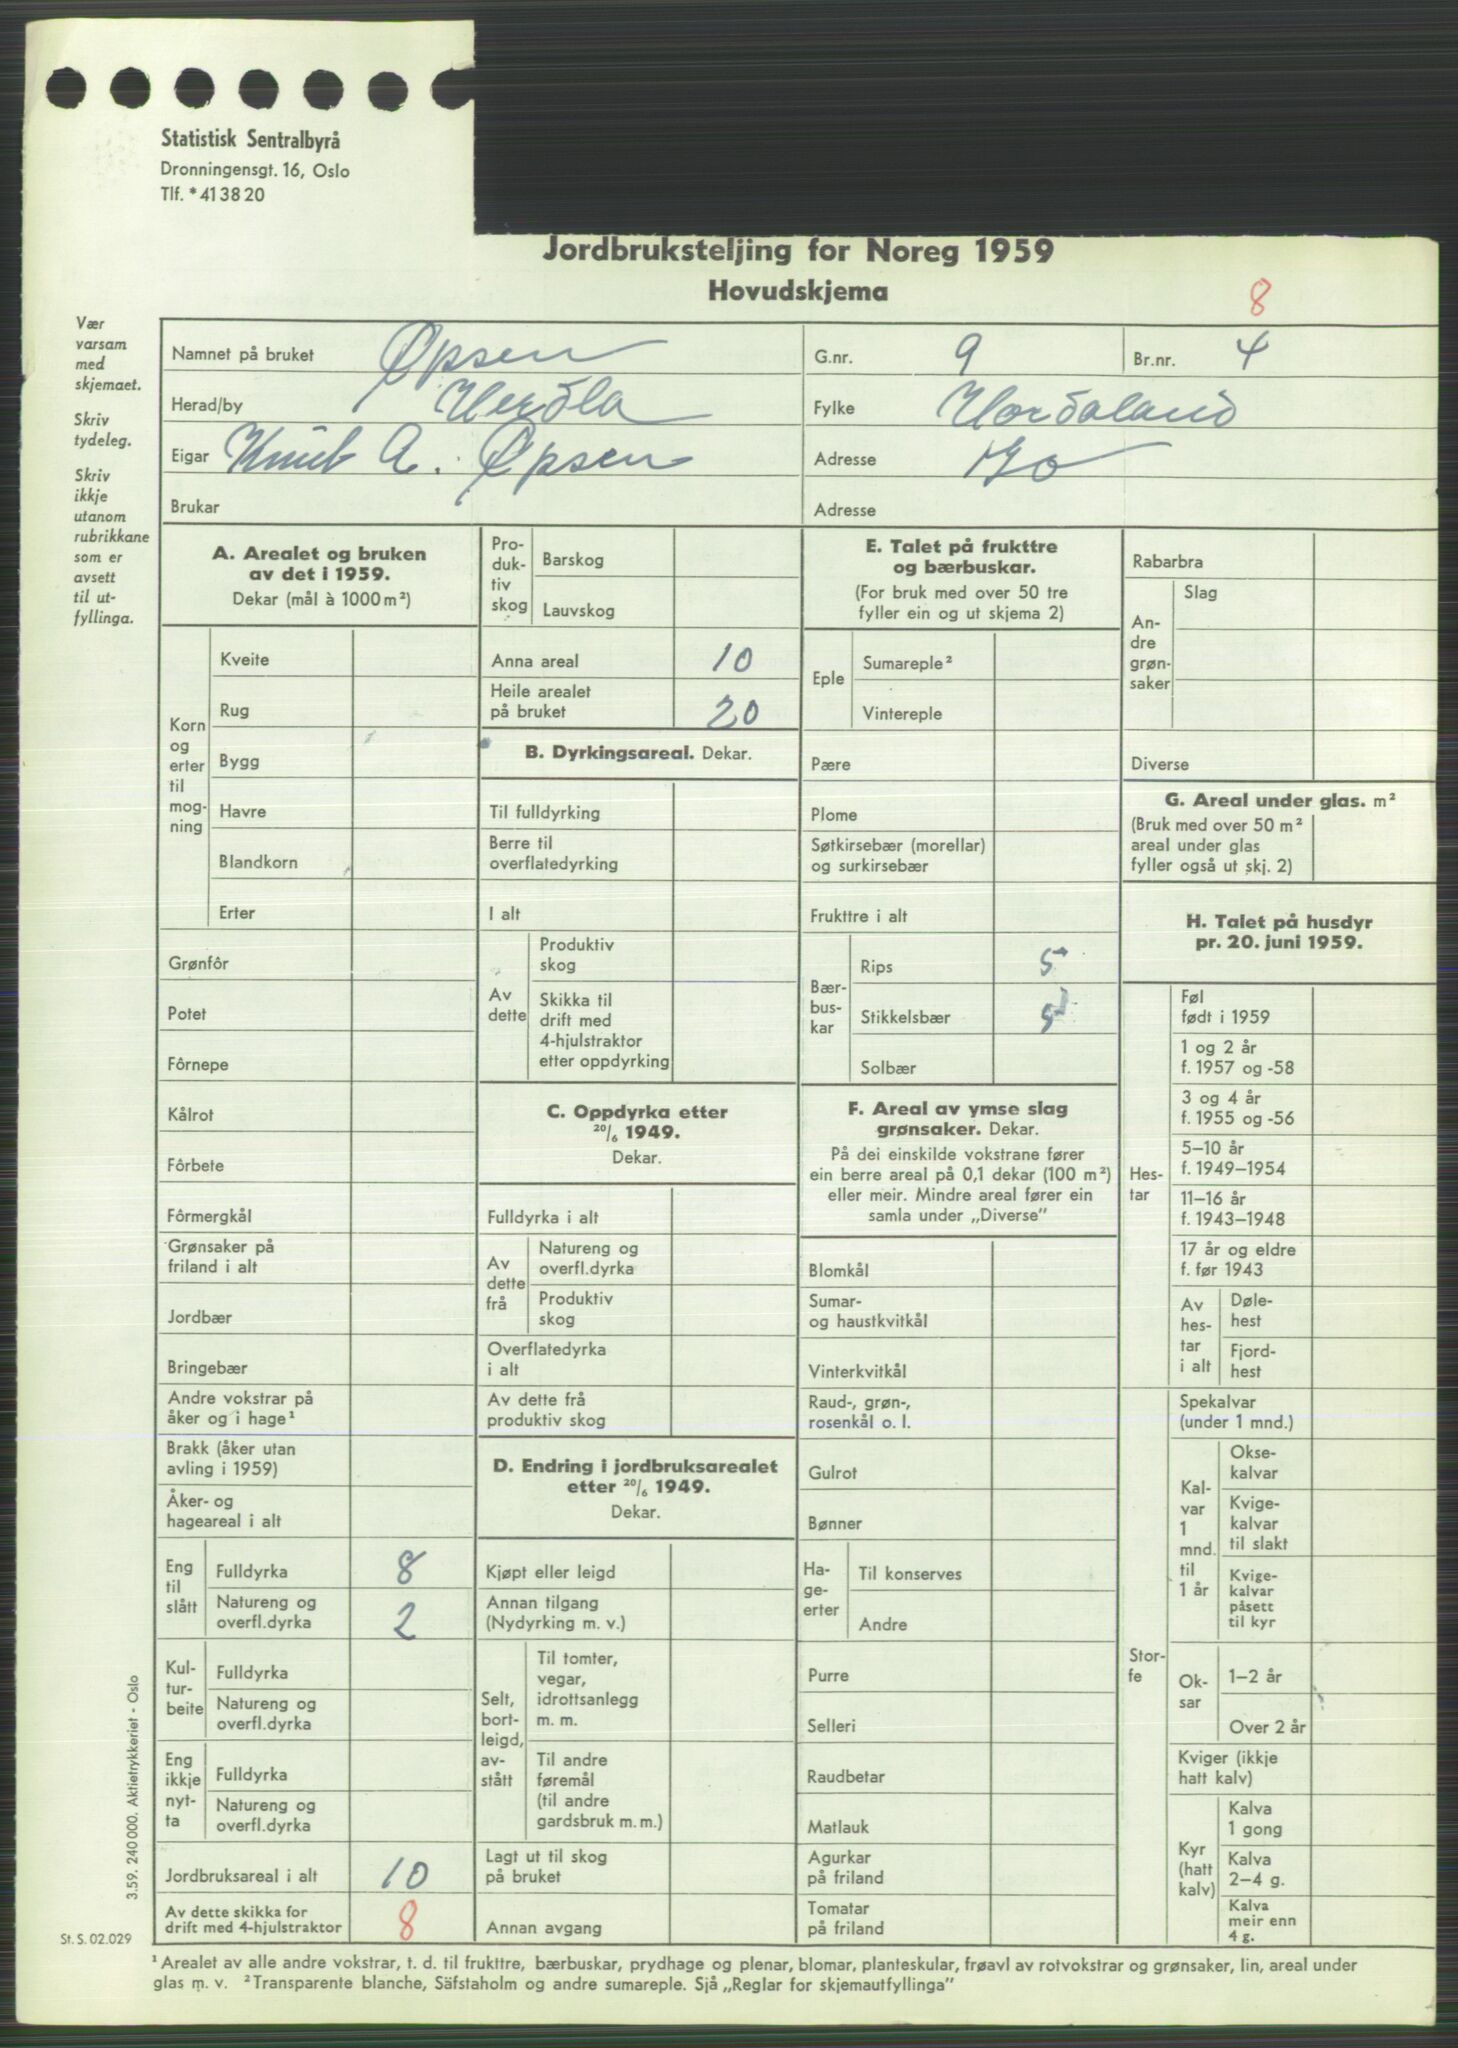 Statistisk Sentralbyrå
Dronningensgt. 16, Oslo
Tlf. *41 38 20
Jordbruksteljing for Noreg 1959
Hovudskjema
8
Vær
varsam
med
skjemaet.
Skriv
tydeleg.
Skriv
ikkje
utanom
rubrikkane
som er
avsett
til ut-
fyllinga.
Namnet på bruket Øpsen
G.nr. 9
Br.nr. 4
Herad/by Herdla
Fylke Hordaland
Eigar Knut A. Øpsen
Adresse
Brukar
Adresse
A. Arealet og bruken
av det i 1959.
Dekar (mål à 1000 m²)
Korn
og
erter
til
mog-
ning
Kveite
Rug
Bygg
Havre
Blandkorn
Erter
Grønfôr
Potet
Fôrnepe
Kålrot
Fôrbete
Fôrmergkål
Grønsaker på
friland i alt
Jordbær
Bringebær
Andre vokstrar på
åker og i hage¹
Brakk (åker utan
avling i 1959)
Åker- og
hageareal i alt
Eng
til
slått
Fulldyrka 8
Natureng og
overfl.dyrka 2
Kul-
tur-
beite
Fulldyrka
Natureng og
overfl.dyrka
Eng
ikkje
nyt-
ta
Fulldyrka
Natureng og
overfl.dyrka
Jordbruksareal i alt 10
Av dette skikka for
drift med 4-hjulstraktor 8
Pro-
duk-
tiv
skog
Barskog
Lauvskog
Anna areal 10
Heile arealet
på bruket 20
B. Dyrkingsareal. Dekar.
Til fulldyrking
Berre til
overflatedyrking
I alt
Av
dette
Produktiv
skog
Skikka til
drift med
4-hjulstraktor
etter oppdyrking
C. Oppdyrka etter
20/6 1949.
Dekar.
Fulldyrka i alt
Av
dette
frå
Natureng og
overfl.dyrka
Produktiv
skog
Overflatedyrka
i alt
Av dette frå
produktiv skog
D. Endring i jordbruksarealet
etter 20/6 1949.
Dekar.
Kjøpt eller leigd
Annan tilgang
(Nydyrking m. v.)
Selt,
bort-
leigd,
av-
stått
Til tomter,
vegar,
idrottsanlegg
m. m.
Til andre
føremål
(til andre
gardsbruk m. m.)
Lagt ut til skog
på bruket
Annan avgang
E. Talet på frukttre
og bærbuskar.
(For bruk med over 50 tre
fyller ein og ut skjema 2)
Eple
Sumareple²
Vintereple
Pære
Plome
Søtkirsebær (morellar)
og surkirsebær
Frukttre i alt
Bær-
bus-
kar
Rips 5
Stikkelsbær 5
Solbær
F. Areal av ymse slag
grønsaker. Dekar.
På dei einskilde vokstrane fører
ein berre areal på 0,1 dekar (100 m²)
eller meir. Mindre areal fører ein
samla under „Diverse”
Blomkål
Sumar-
og haustkvitkål
Vinterkvitkål
Raud-, grøn-,
rosenkål o. l.
Gulrot
Bønner
Ha-
ge-
erter
Til konserves
Andre
Purre
Selleri
Raudbetar
Matlauk
Agurkar
på friland
Tomatar
på friland
Rabarbra
An-
dre
grøn-
saker
Slag
Diverse
G. Areal under glas. m²
(Bruk med over 50 m²
areal under glas
fyller også ut skj. 2)
H. Talet på husdyr
pr. 20. juni 1959.
Hes-
tar
Føl
født i 1959
1 og 2 år
f. 1957 og -58
3 og 4 år
f. 1955 og -56
5–10 år
f. 1949–1954
11–16 år
f. 1943–1948
17 år og eldre
f. før 1943
Av
hes-
tar
i alt
Døle-
hest
Fjord-
hest
Stor-
fe
Spekalvar
(under 1 mnd.)
Kal-
var
1
mnd.
til
1 år
Okse-
kalvar
Kvige-
kalvar
til slakt
Kvige-
kalvar
påsett
til kyr
Ok-
sar
1–2 år
Over 2 år
Kviger (ikkje
hatt kalv)
Kyr
(hatt
kalv)
Kalva
1 gong
Kalva
2–4 g.
Kalva
meir enn
4 g.
3.59. 240 000. Aktietrykkeriet - Oslo
St. S. 02.029
¹ Arealet av alle andre vokstrar, t. d. til frukttre, bærbuskar, prydhage og plenar, blomar, planteskular, frøavl av rotvokstrar og grønsaker, lin, areal under
glas m. v. ² Transparente blanche, Säfstaholm og andre sumareple. Sjå „Reglar for skjemautfyllinga”